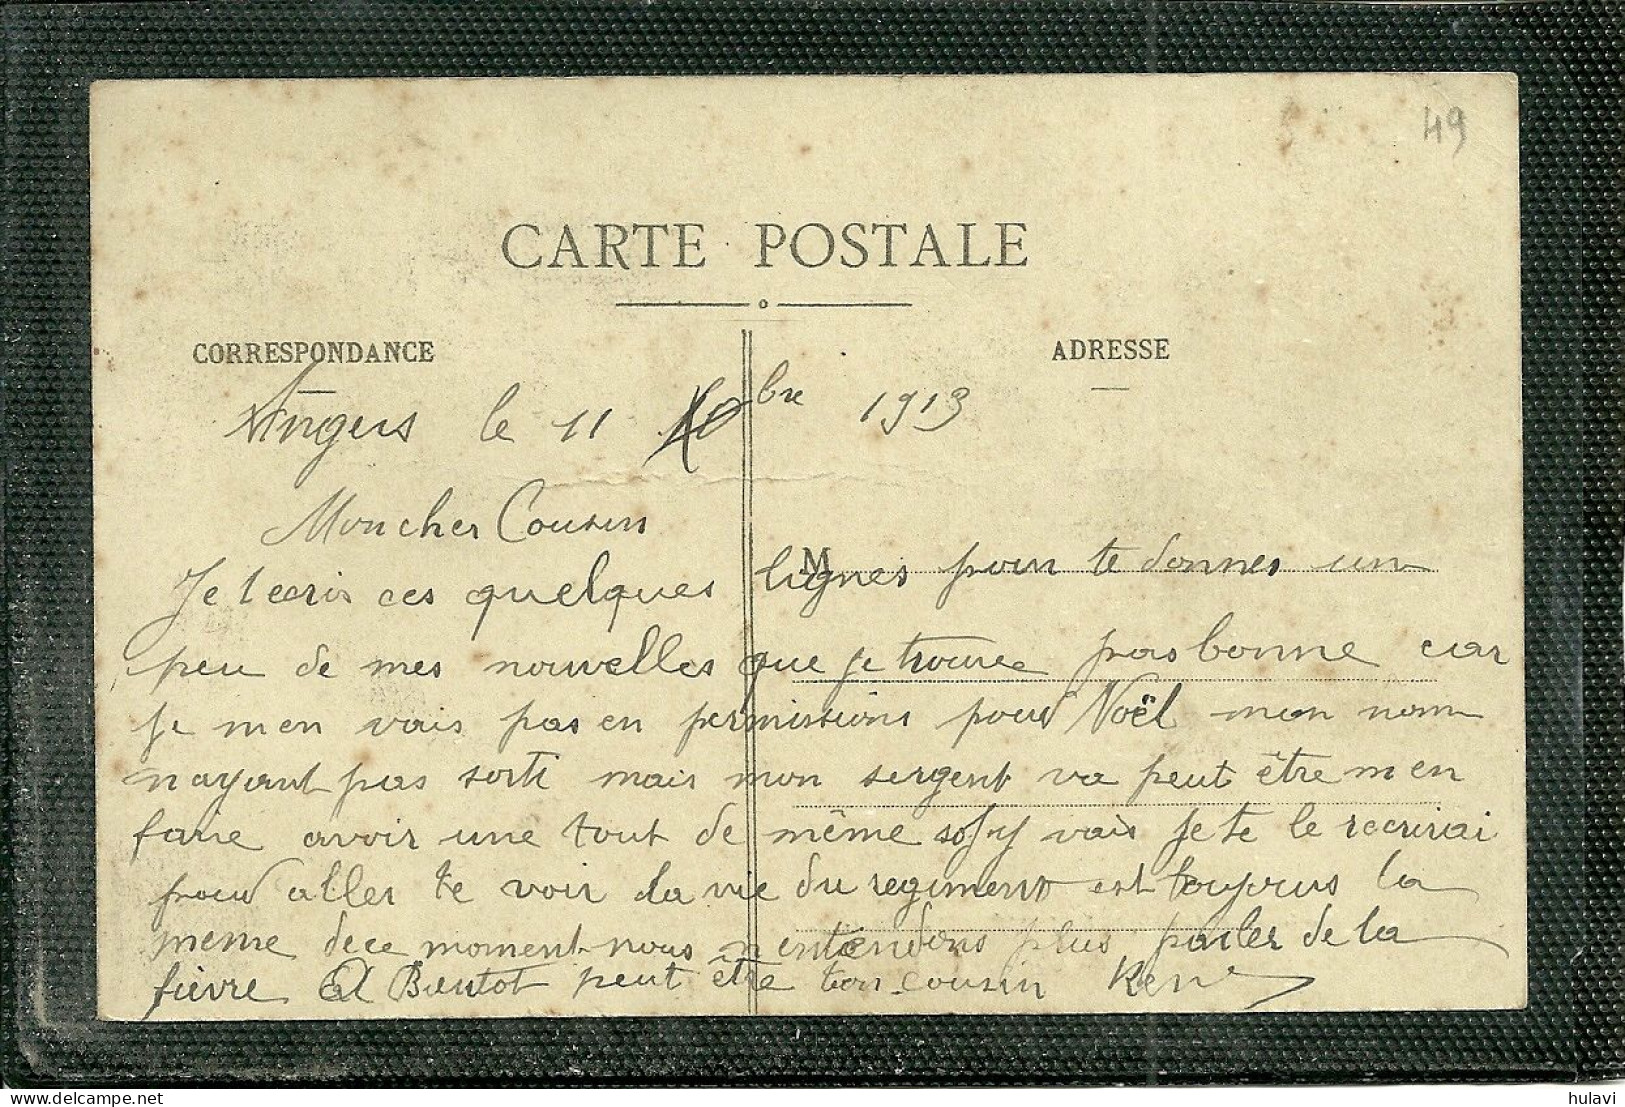 49
CARTE POSTALE
CORRESPONDANCE
ADRESSE
Angers le 11 Xbre 1913
Moncher Cousin
M
Je tecris ces quelques lignes pour te donner un
peu de mes nouvelles que je trouve pas bonne car
je men vais pas en permissions pour Noël mon nom
nayant pas sorti mais mon sergent va peut être men
faire avoir une tout de même si jy vais je te le recrirai
pour aller te voir la vie du regiment est toujours la
meme dece moment nous nentendons plus parler de la
fievre A Bientot peut être ton cousin René
hulavi